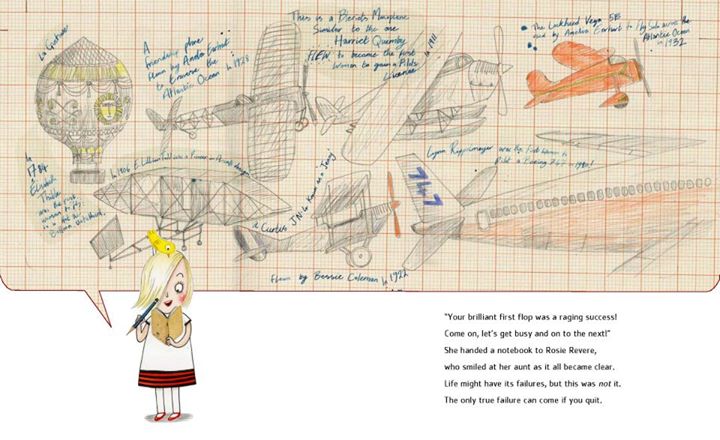 La Gustave
A
friendship plane
flown by Amelia Earhart
to
the
Atlantic Ocean in 1928
This is a Bleriots Monoplane
Similar to the one
Harriet Quimby
FLEW to become the first
Women to gain a Pilots
License in 1911
• The Lockheed Vega 5B
used by Amelia Earhart to fly Solo across the
Atlantic Ocean
in 1932
In
1784
Elisabeth
Thible
was the first
woman to fly
in a hot air
Balloon
In 1906 E. Lillian Todd was a Pioneer in Aircraft design
A Curtis JN-4 known as a Jenny
Flown by Bessie Coleman in 1922
Lynn Rippelmeyer was the first woman to
Pilot a Boeing 747 in 1980!
747
"Your brilliant first flop was a raging success!
Come on, let's get busy and on to the next!"
She handed a notebook to Rosie Revere,
who smiled at her aunt as it all became clear.
Life might have its failures, but this was not it.
The only true failure can come if you quit.